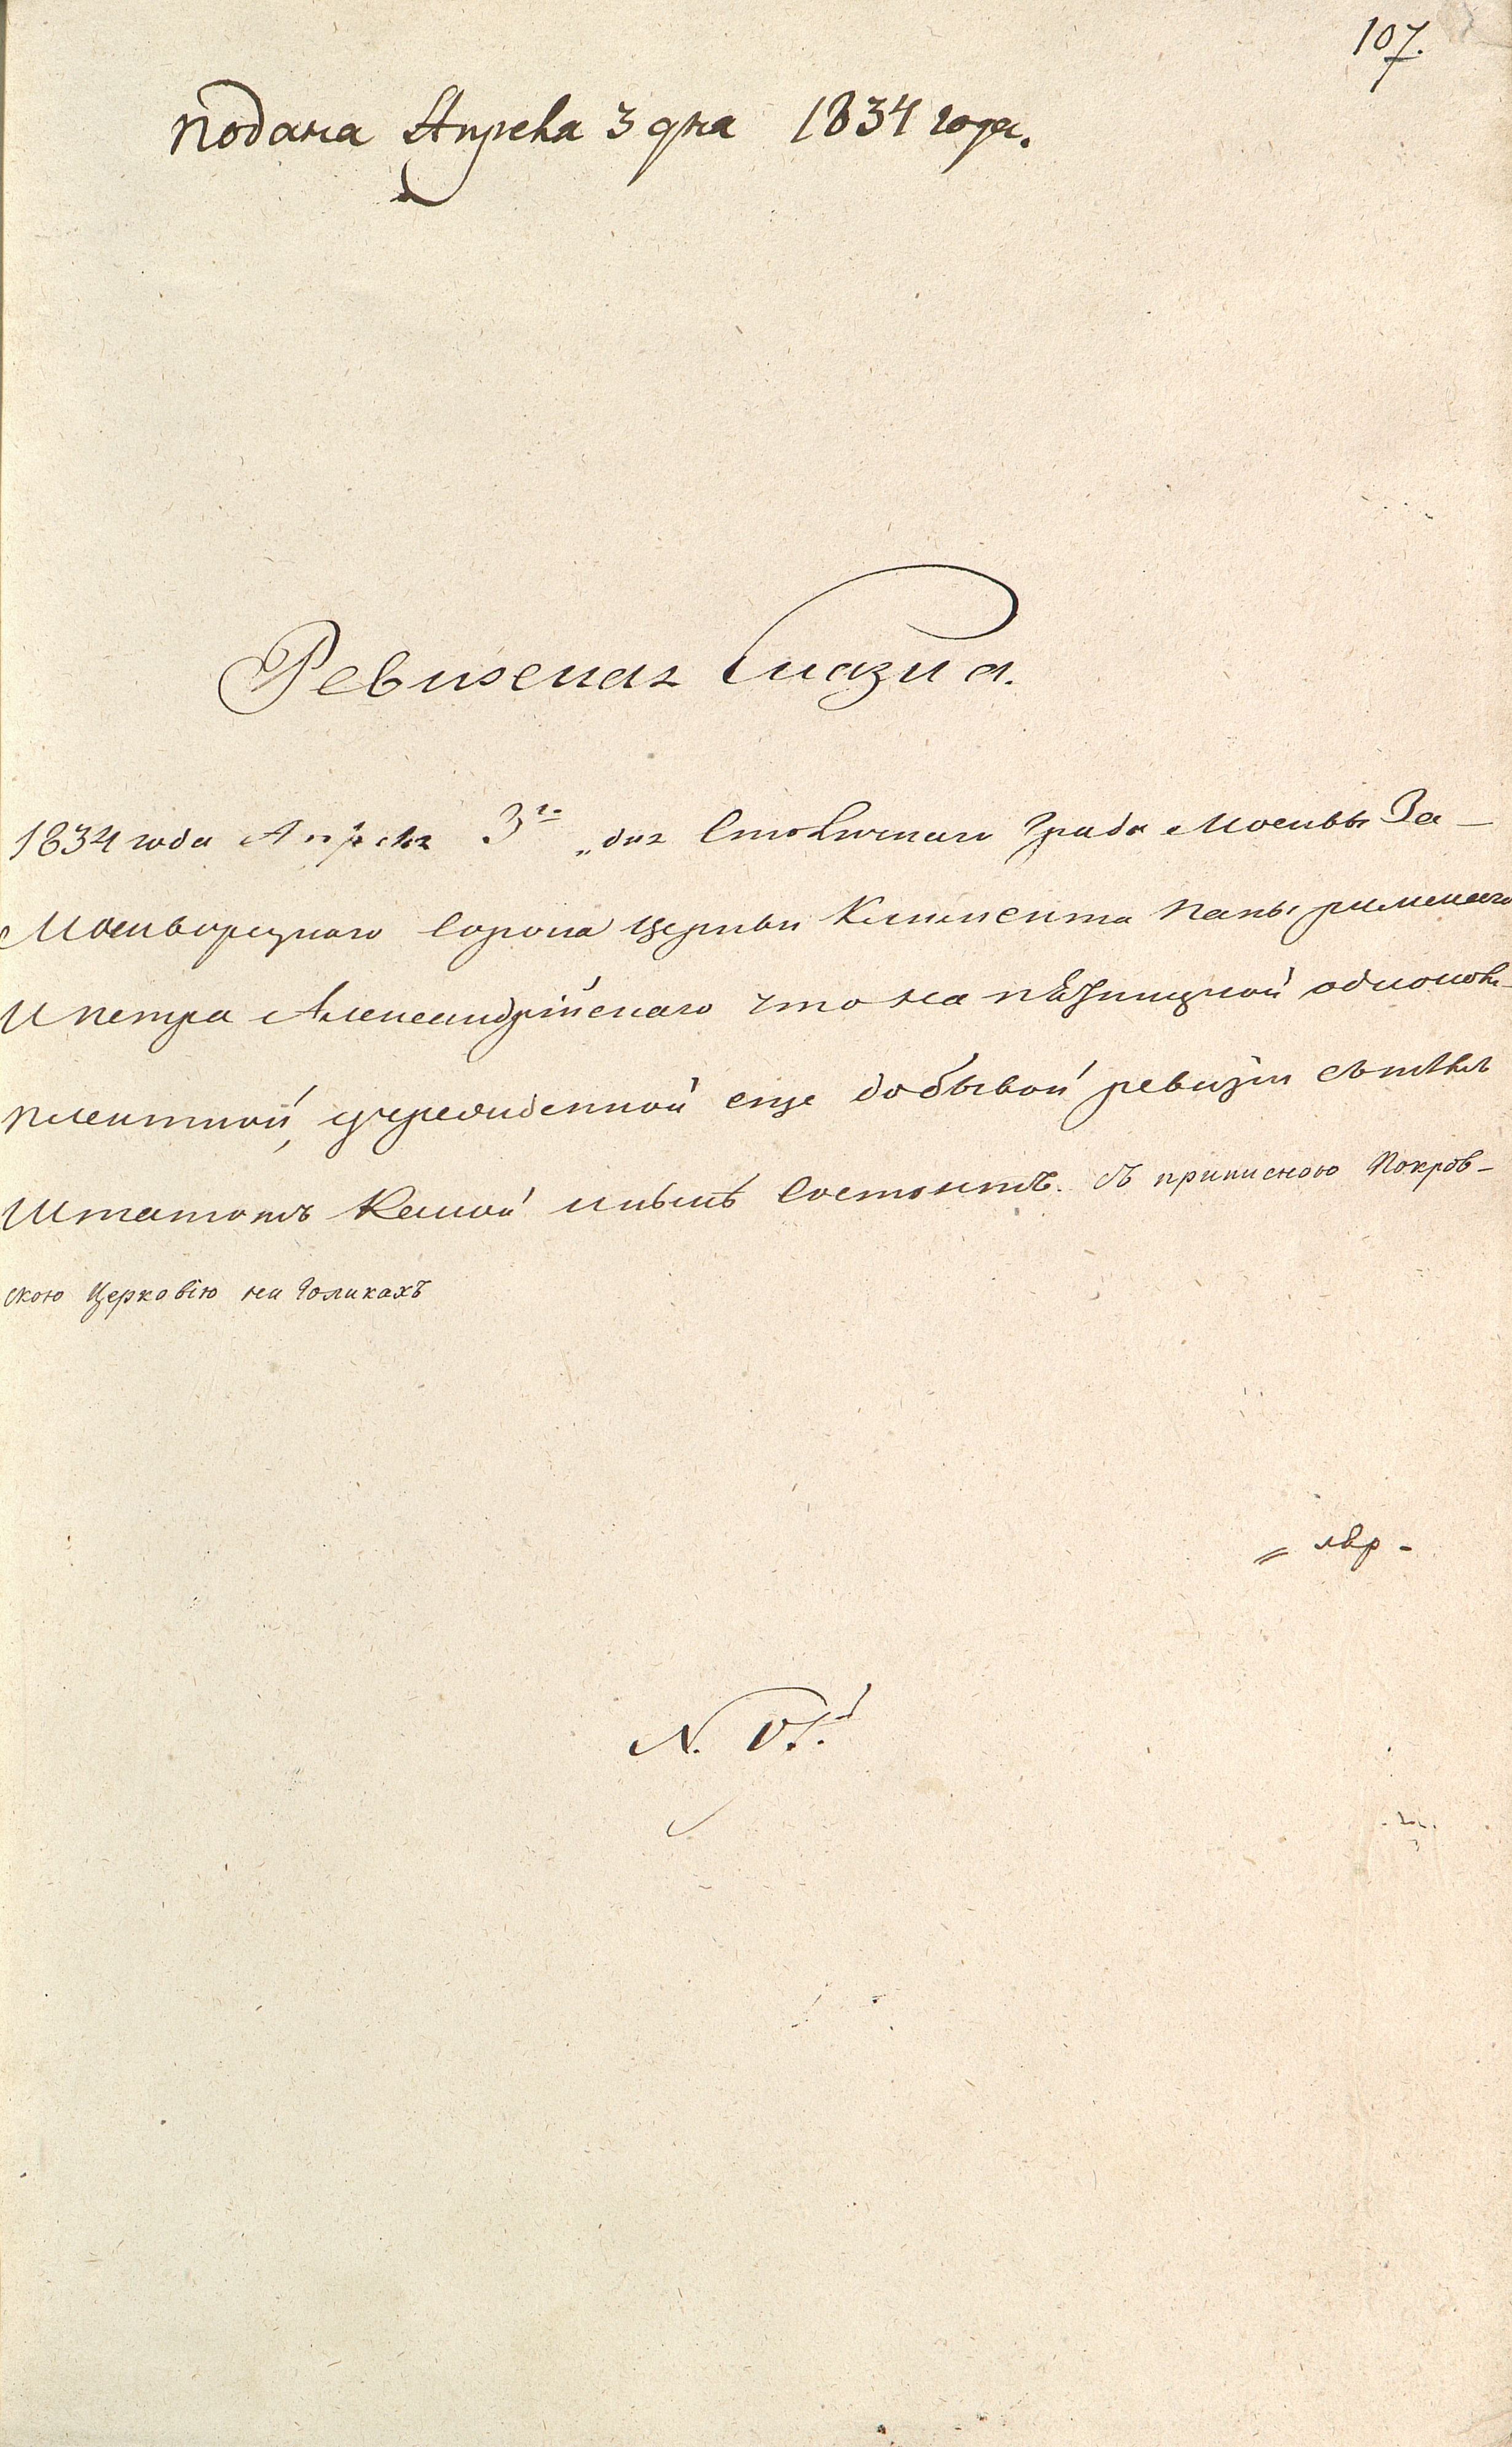 107.
подана Апреля 3 дня 1834 года.
Ревижская Сказка.
1834 года Апреля 3го „дня Столичнаго Града Москвы За-
Москворецкаго Сорока Церкви Климента папы римскаго
И петра Александрійскаго что на пѣтницкой однокомп-
плектной, учрежденной еще до бывой ревизіи съ тѣмъ
Штатомъ Какой инынѣ Состоитъ. съ приписною Покров-
скою Церковію на Голикахъ
N.